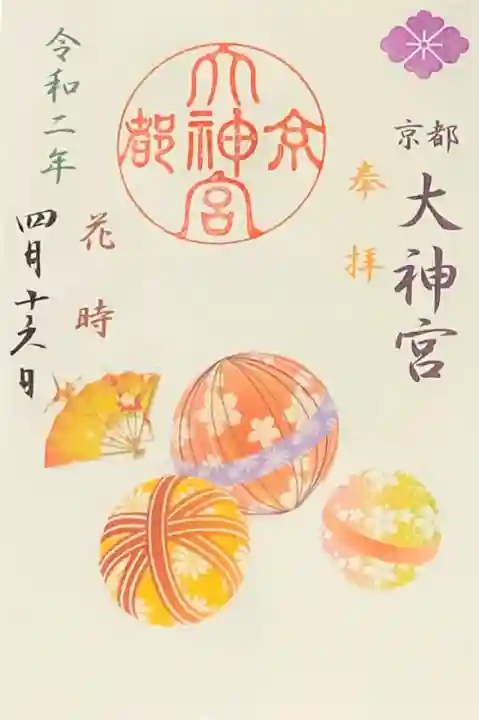 京都
大神宮
奉拝
京都大神宮
花時
令和二年
四月十六日